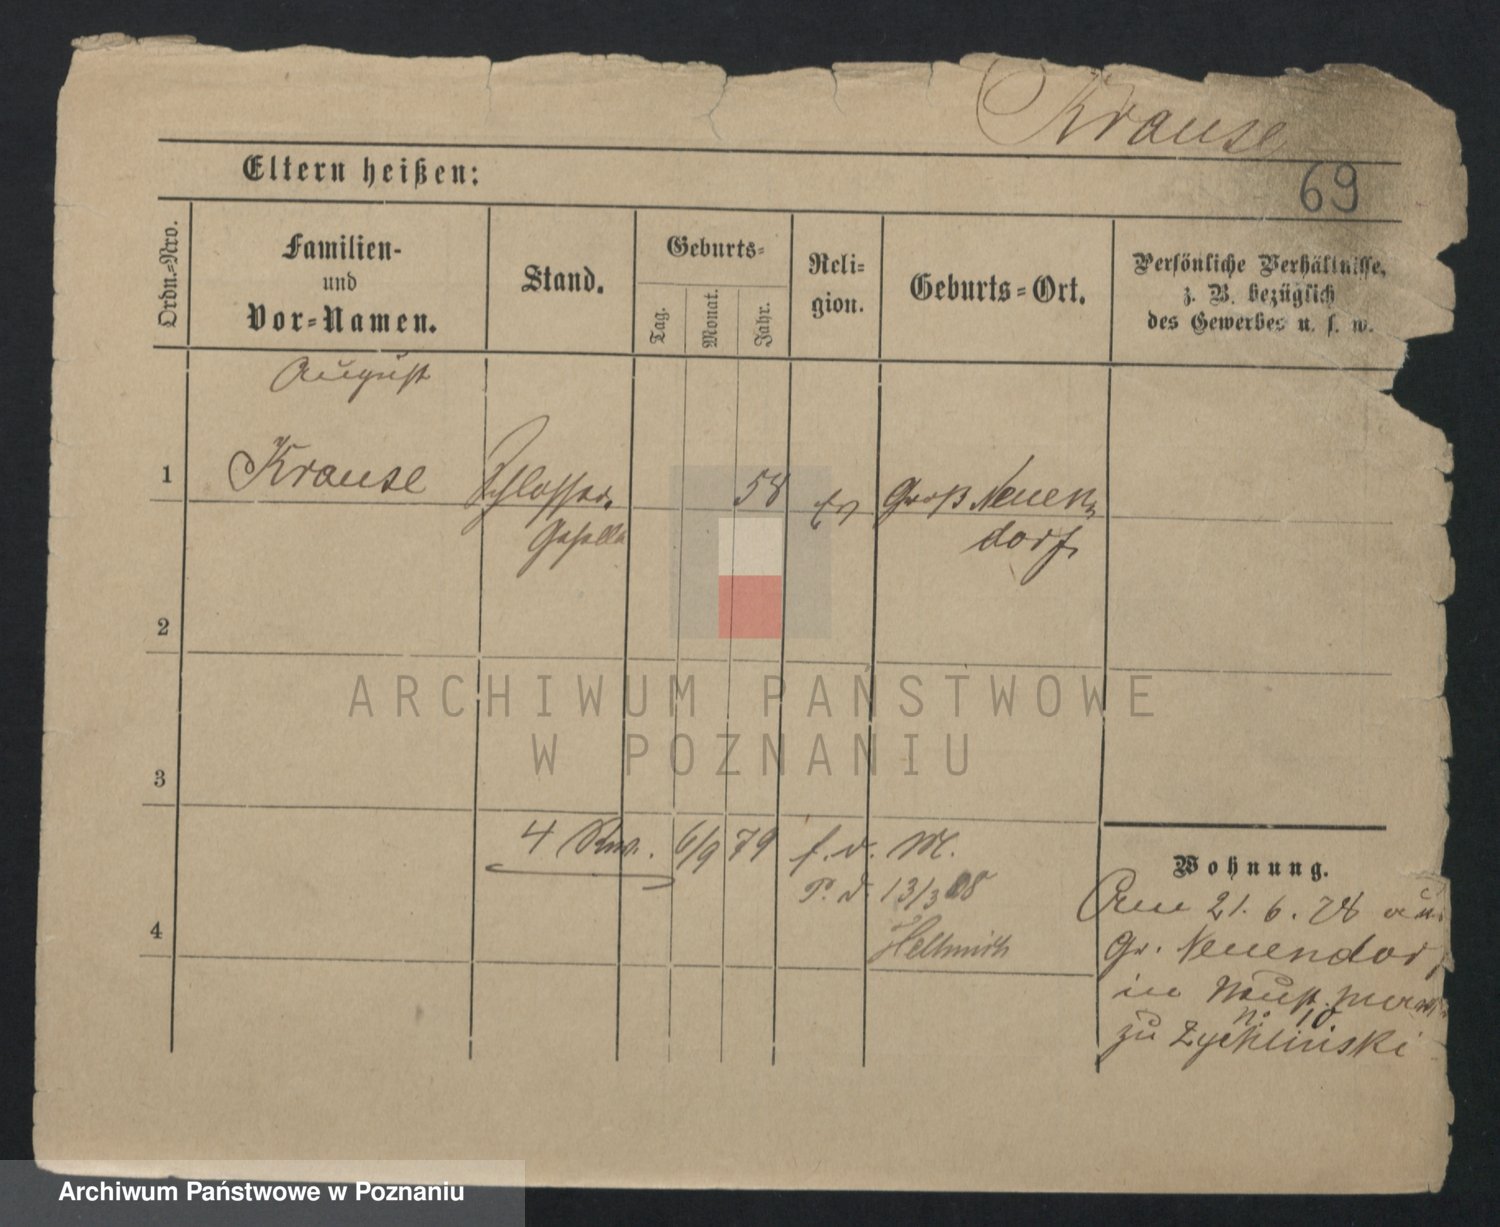 Krause
69
Eltern heißen:
Ordn.-Nro.
Familien-
und
Vor-Namen.
Stand.
Geburts-
Tag.
Monat.
Jahr.
Reli-
gion.
Geburts-Ort.
Persönliche Verhältnisse,
z. B. bezüglich
des Gewerbes u. s. w.
August
1
Krause
Schlosser
Geselle
58
ev
Groß Neuen-
dorf
2
3
4
4 6/9 79 f. d. M.
P. d 13/3 88
Hellmich
Wohnung.
Am 21. 6. 78 aus
Gr. Neuendorf
in
No 10
zu Zychlinski
ARCHIWUM PAŃSTWOWE
W POZNANIU
Archiwum Państwowe w Poznaniu